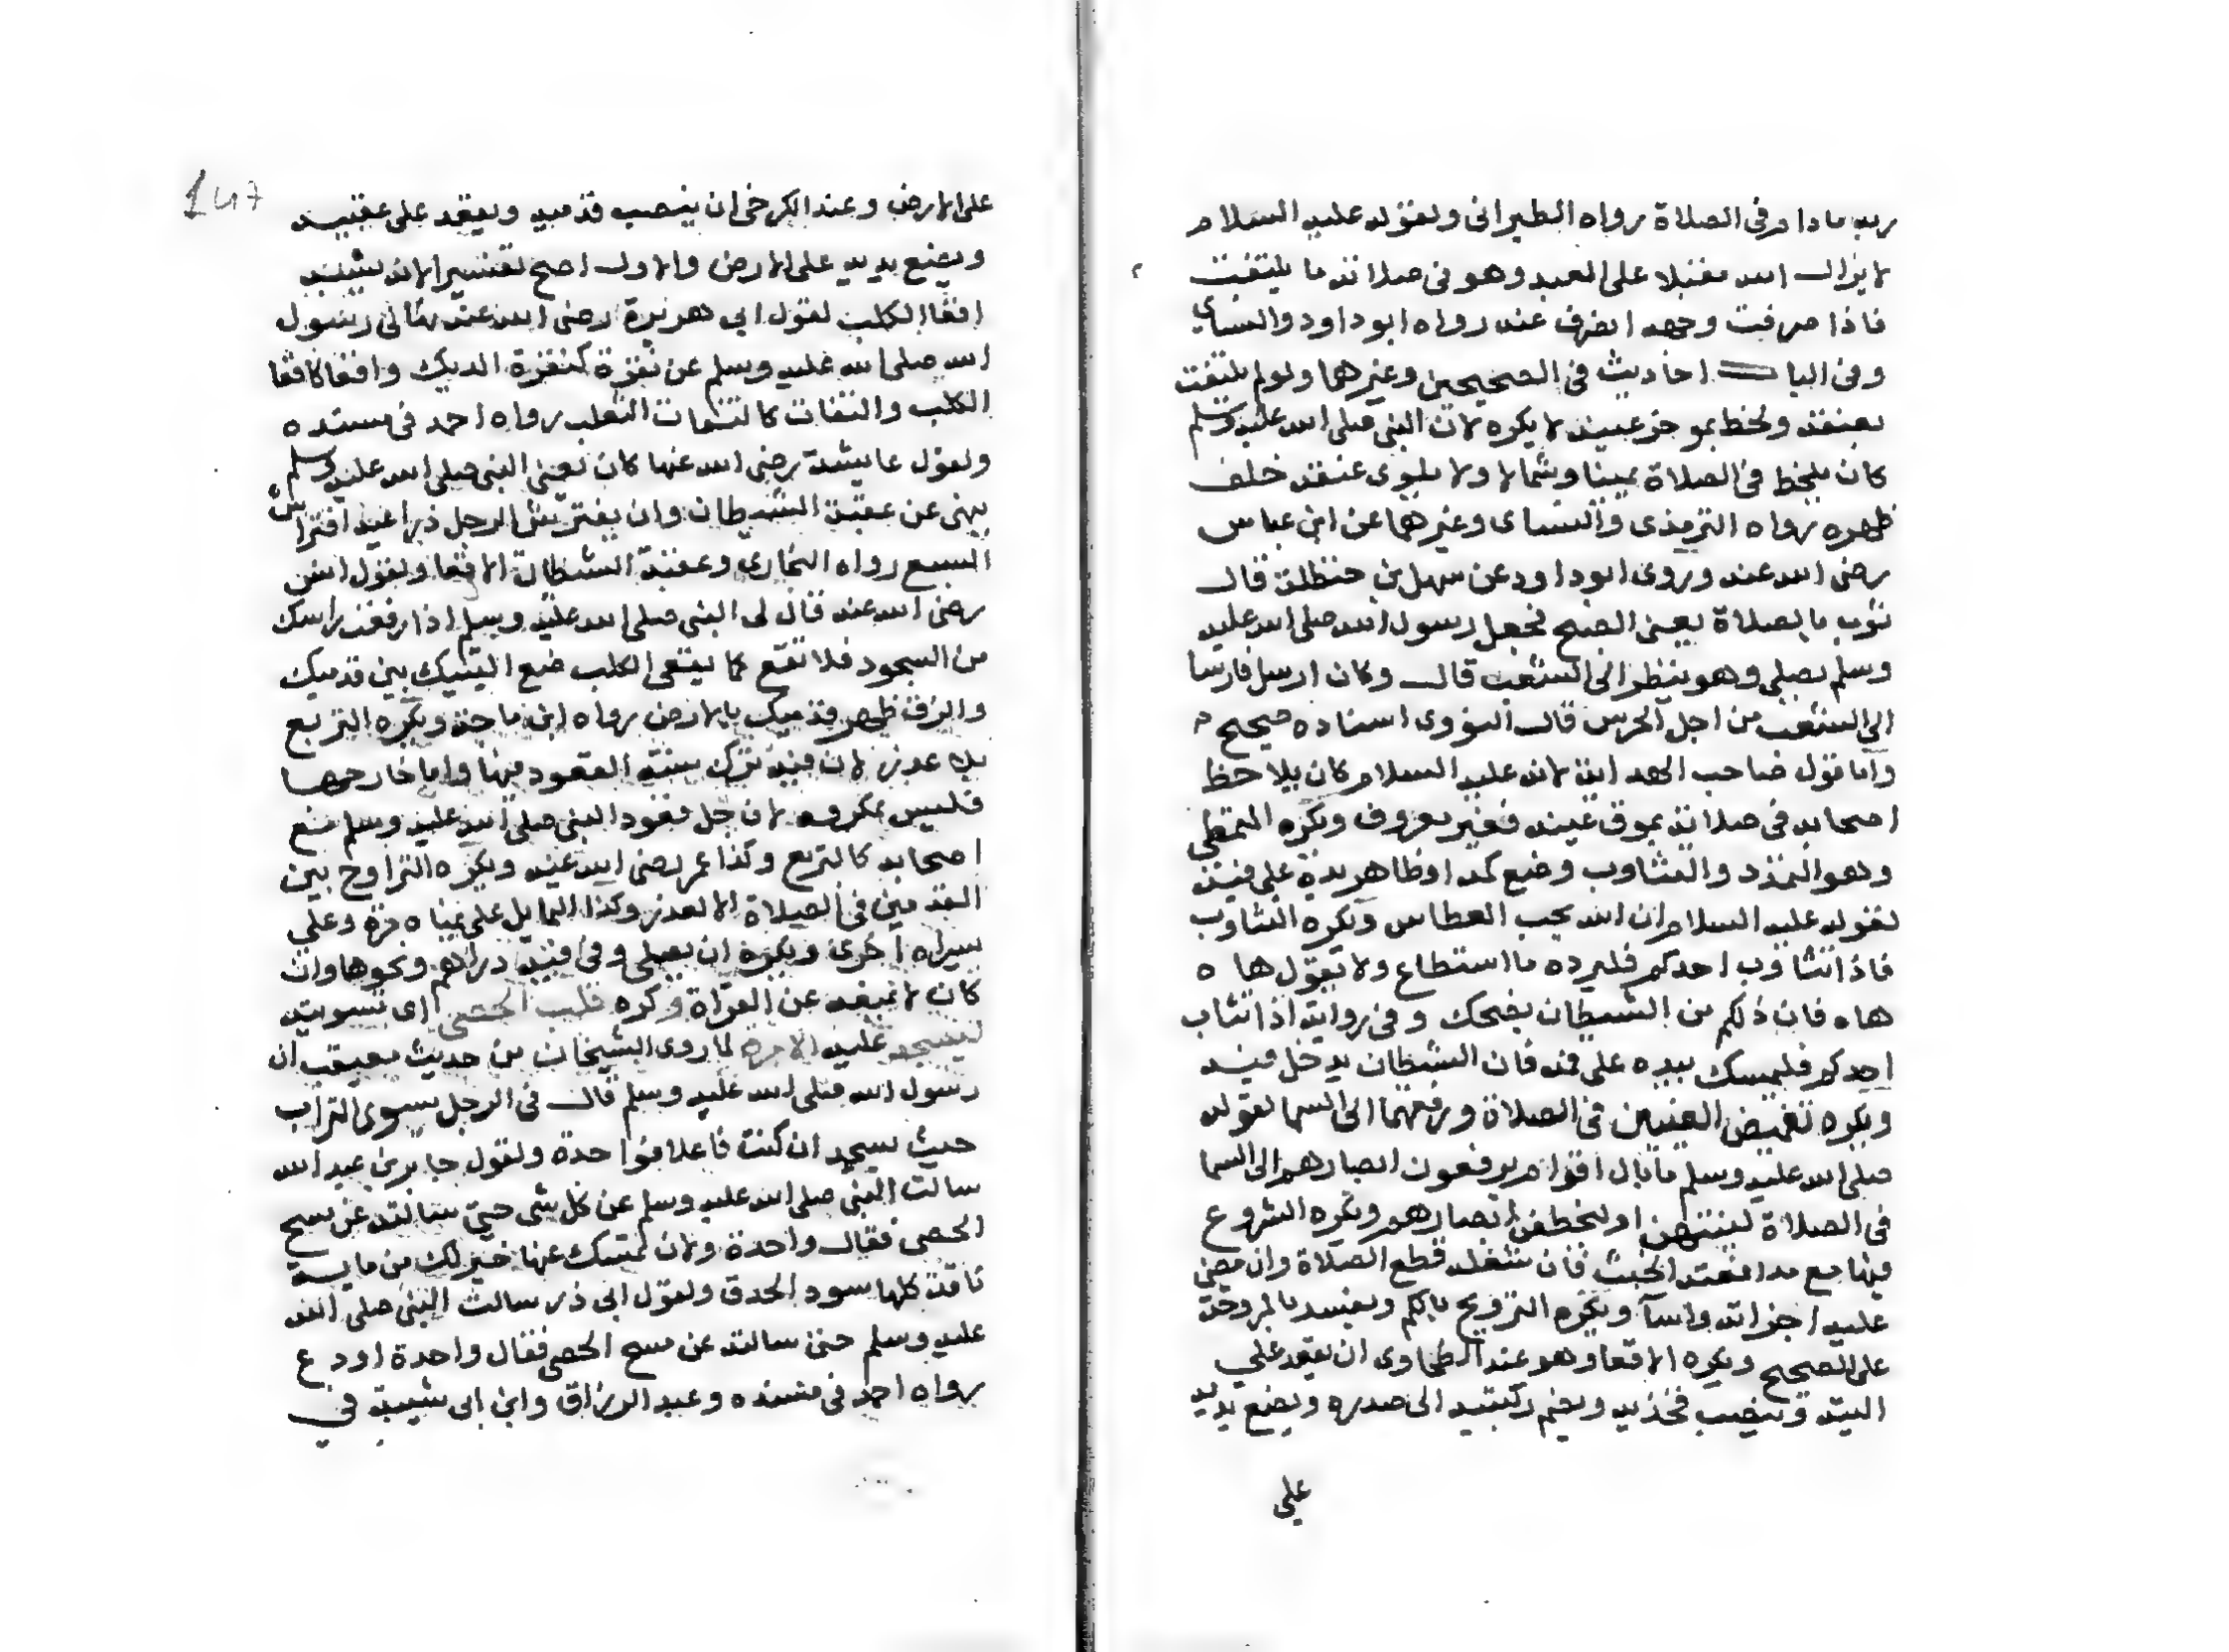 ربه مادام في الصلاة رواه الطبراني ولقوله عليه السلام
لا يزال الله مقبلا على العبد وهو في صلاته ما يلتفت
فاذا صرفت وجهه انصرف عنه رواه ابوداود والنساي
وفي الباب احاديث في الصحيحين وغيرهما ولولم يلتفت
بعنقه ولحظ بموخر عينيه لا يكره لان النبي صلى الله عليه وسلم
كان يلحظ في الصلاة يمينا وشمالا ولا يلوى عنقه خلف
ظهره رواه الترمذى والنساى وغيرهما عن ابن عباس
رضى الله عنه وروى ابوداود عن سهل بن حنظلة قال
ثوب بالصلاة يعنى الصبح فجعل رسول الله صلى الله عليه
وسلم يصلي وهو ينظر الى الشعب قال وكان ارسل فارسا
الى الشعب من اجل الحرس قال النووى اسناده صحيح م
واما قول صاحب الهداية لانه عليه السلام كان يلاحظ
اصحابه في صلاته بموق عينه فغير معروف ويكره التمطي
وهو التمدد والتثاوب وضع كمه او ظاهر يده على فيه
لقوله عليه السلام ان الله يحب العطاس ويكره التثاوب
فاذا تثاوب احدكم فليرده ما استطاع ولا يقول ها ه
هاه فان ذلكم من الشيطان يضحك وفى رواية اذا تثاب
احدكم فليمسك بيده على فمه فان الشيطان يدخل فيه
ويكره تغميض العينين فى الصلاة ورفعهما الى السما لقوله
صلى الله عليه وسلم ما بال اقوام يرفعون ابصارهم الى السما
فى الصلاة لينتهن او لتخطفن ابصارهم ويكره الشروع
فيها مع مدافعته الخبث فان شغله قطع الصلاة وان مضي
عليه اجزاته واسآ ويكره الترويح بالكم ويفسد بالمروحة
على الصحيح ويكره الاقعا وهو عند الطحاوى ان يقعد علي
اليتيه وينصب فخذيه ويضم ركبتيه الى صدره ويضع يديه
علي
147
على الارض وعند الكرخى ان ينصب قدميه ويقعد على عقبيه
ويضع يديه على الارض والاول اصح تفسيرا لانه يشبه
اقعا الكلب لقول ابى هريرة رضى الله عنه نهانى رسول
الله صلى الله عليه وسلم عن نقرة كنقرة الديك واقعا كاقعا
الكلب والتفات كالتفات الثعلب رواه احمد في مسنده
ولقول عايشة رضى الله عنها كان تعنى النبى صلى الله عليه وسلم
ينهى عن عقبة الشيطان وان يفترش الرجل ذراعيه افتراش
السبع رواه البخارى وعقبة الشيطان الاقعا ولقول انس
رضى الله عنه قال لى النبى صلى الله عليه وسلم اذا رفعت راسك
من السجود فلا تقع كما يقعى الكلب ضع اليتيك بين قدميك
والزق ظهر قدميك بالارض رواه ابن ماجة ويكره التربع
بلا عذر لان فيه ترك سنة القعود فيها واما خارجها
فليس بمكروه لان جل قعود النبى صلى الله عليه وسلم مع
اصحابه كالتربع وكذا عمر رضى الله عنه ويكره التراوح بين
القدمين في الصلاة الا لعذر وكذا التمايل على يمناه مرة وعلي
يسراه اخرى ويكره ان يصلي وفى فيه دراهم ونحوها وان
كان لا تمنعه عن القراة وكره قلب الحصى اى تسويته
ليسجد عليه الامرة لما روى الشيخان من حديث معيقب ان
رسول الله صلى الله عليه وسلم قال في الرجل يسوى التراب
حيث يسجد ان كنت فاعلا فواحدة ولقول جابر بن عبد الله
سالت النبى صلى الله عليه وسلم عن كل شى حتى سالته عن مسح
الحصى فقال واحدة ولان تمسك عنها خير لك من ماية
ناقة كلها سود الحدق ولقول ابى ذر سالت النبى صلى الله
عليه وسلم حتى سالته عن مسح الحصى فقال واحدة او دع
رواه احمد فى مسنده وعبد الرزاق وابن ابى شيبة في